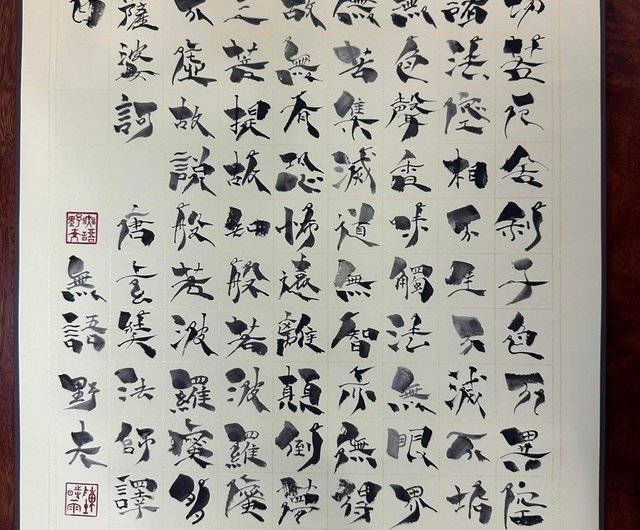 切苦厄舍利子色不異空
諸法空相不生不滅不垢
無色聲香味觸法無眼界
無苦集滅道無智亦無得
故無有恐怖遠離顛倒夢
三菩提故知般若波羅蜜
不虛故說般若波羅蜜多
薩婆訶 唐玄奘法師譯
無語野夫